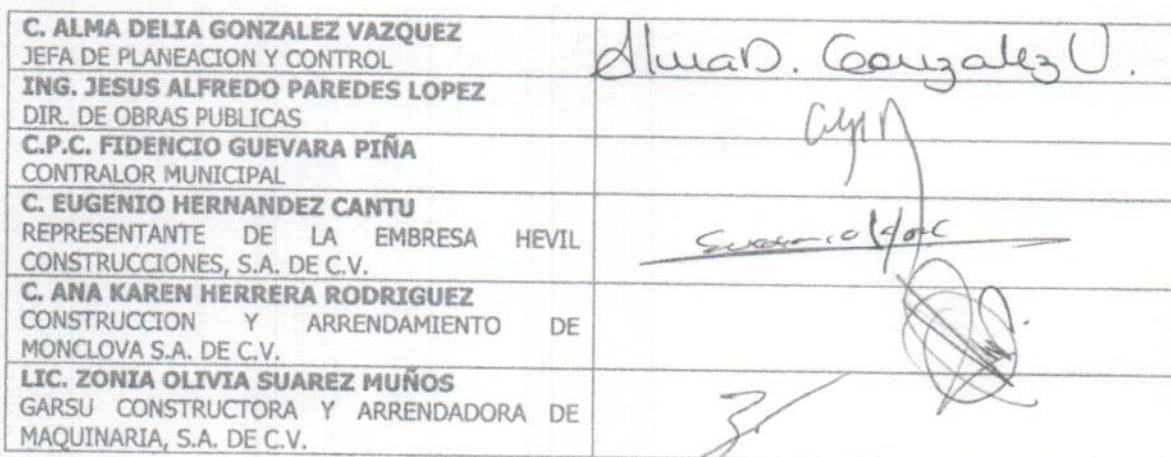 C. ALMA DELIA GONZALEZ VAZQUEZ
JEFA DE PLANEACION Y CONTROL
AlmaD. Gonzalez V.
ING. JESUS ALFREDO PAREDES LOPEZ
DIR. DE OBRAS PUBLICAS
C.P.C. FIDENCIO GUEVARA PIÑA
CONTRALOR MUNICIPAL
C. EUGENIO HERNANDEZ CANTU
REPRESENTANTE DE LA EMBRESA HEVIL
CONSTRUCCIONES, S.A. DE C.V.
C. ANA KAREN HERRERA RODRIGUEZ
CONSTRUCCION Y ARRENDAMIENTO DE
MONCLOVA S.A. DE C.V.
LIC. ZONIA OLIVIA SUAREZ MUÑOS
GARSU CONSTRUCTORA Y ARRENDADORA DE
MAQUINARIA, S.A. DE C.V.